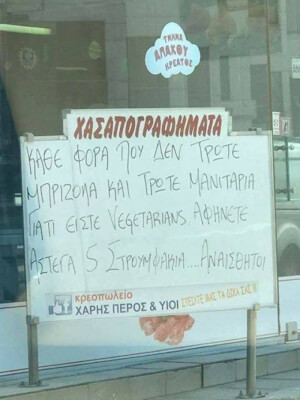 ΤΜΗΜΑ
ΑΠΑΧΟΥ
ΚΡΕΑΤΟΣ
ΧΑΣΑΠΟΓΡΑΦΗΜΑΤΑ
ΚΑΘΕ ΦΟΡΑ ΠΟΥ ΔΕΝ ΤΡΩΤΕ
ΜΠΡΙΖΟΛΑ ΚΑΙ ΤΡΩΤΕ ΜΑΝΙΤΑΡΙΑ
ΓΙΑΤΙ ΕΙΣΤΕ VEGETARIANS ΑΦΗΝΕΤΕ
ΑΣΤΕΓΑ 5 ΣΤΡΟΥΜΦΑΚΙΑ...ΑΝΑΙΣΘΗΤΟΙ
κρεοπωλείο
ΧΑΡΗΣ ΠΕΡΟΣ & ΥΙΟΙ
ΣΤΕΙΛΤΕ ΜΑΣ ΤΑ ΔΙΚΑ ΣΑΣ !!!